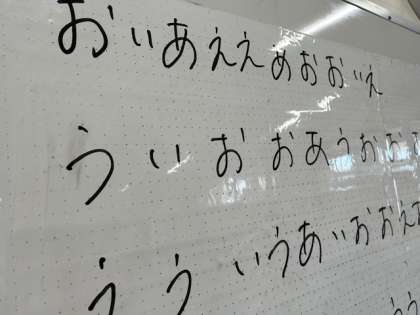 おいあええあおおいえ
ういおおあうおお
ううういうあいおおえ